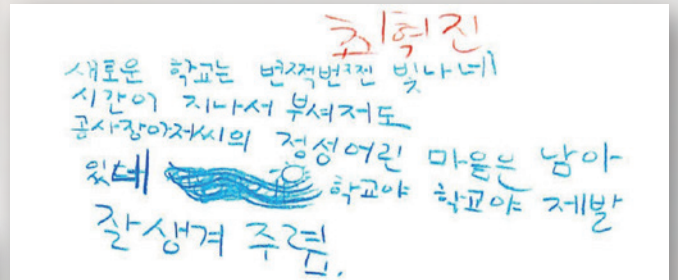 최혁진
새로운 학교는 번쩍번쩐 빛나네
시간이 지나서 부셔저도
공사장아저씨의 정성어린 마음은 남아
있데 학교야 학교야 제발
잘 생겨 주렴.